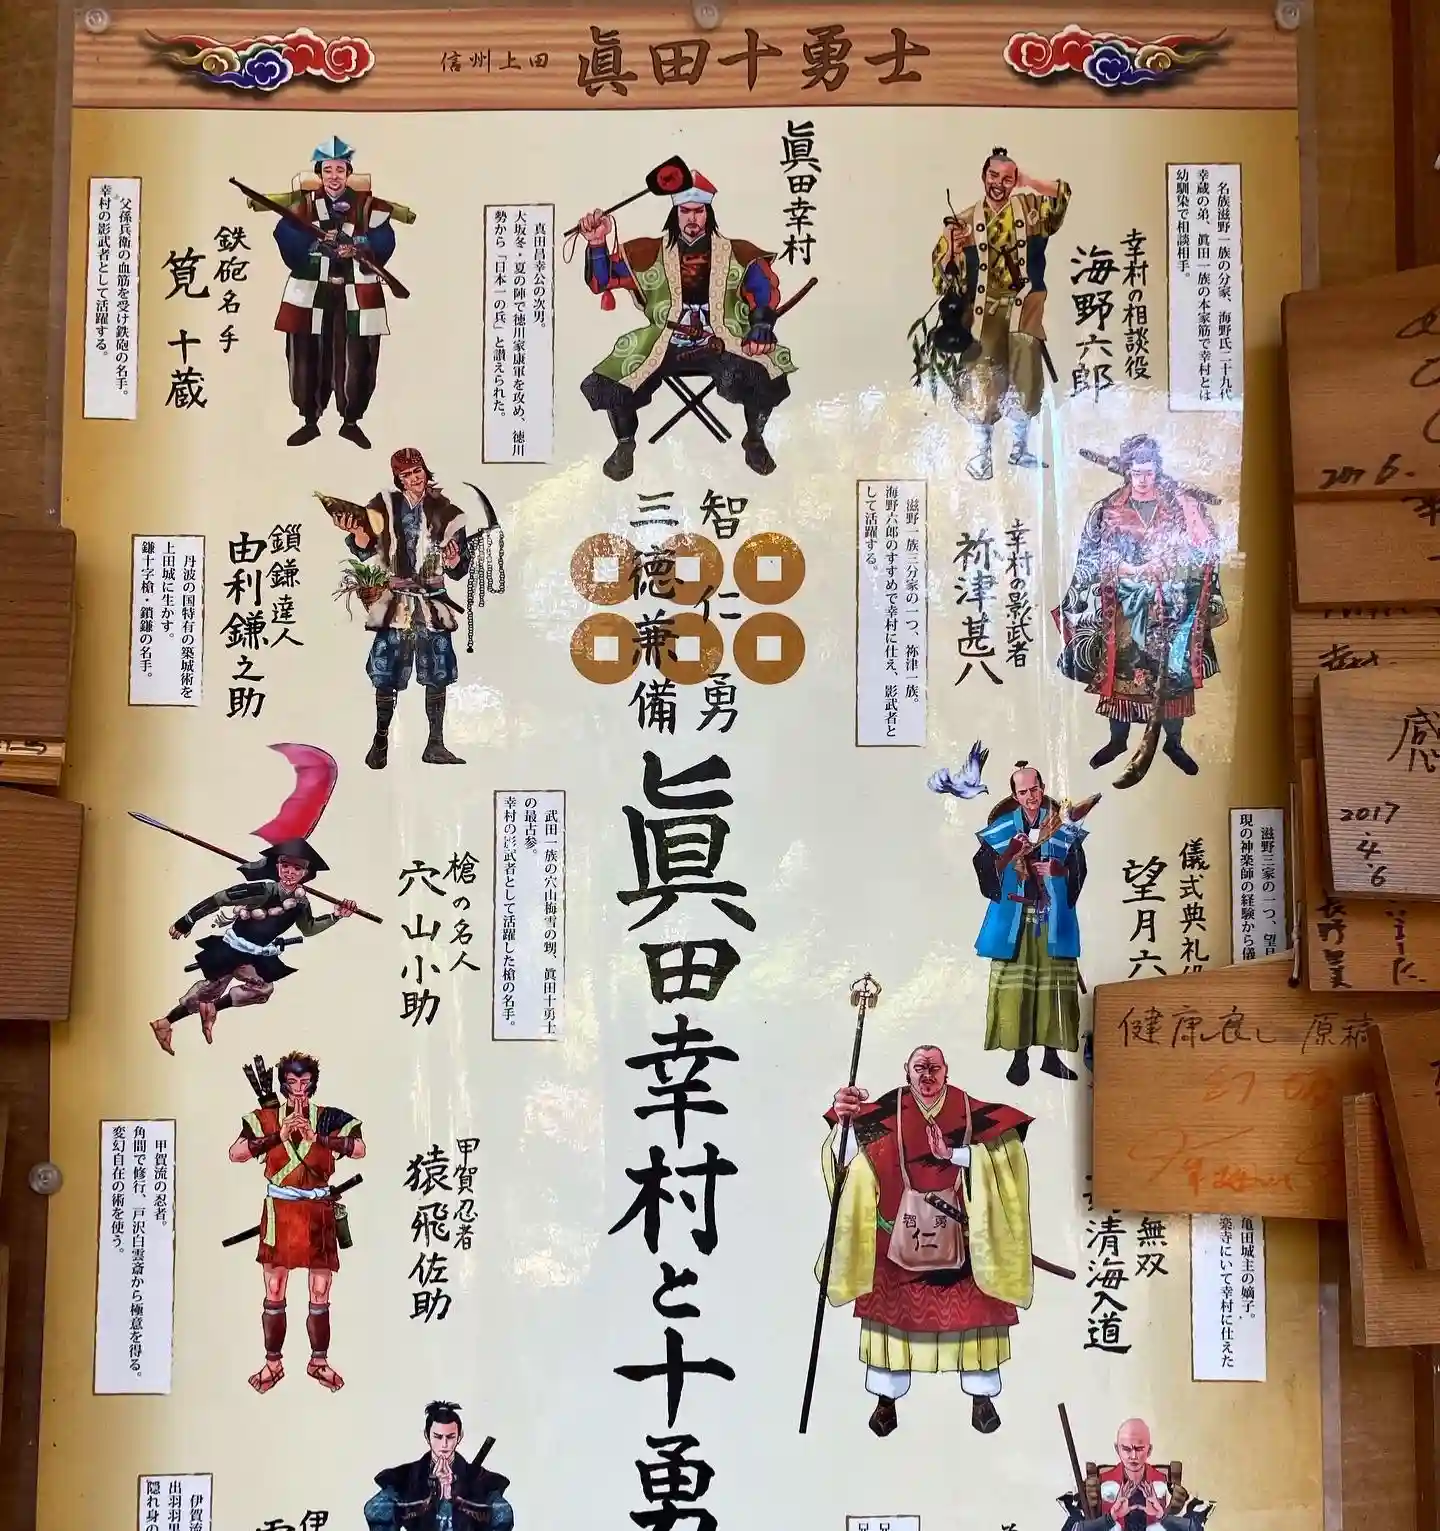 信州上田 眞田十勇士
眞田幸村
真田昌幸公の次男。
大坂冬・夏の陣で徳川家康軍を攻め、徳川
勢から「日本一の兵」と讃えられた。
幸村の相談役
海野六郎
名族滋野一族の分家、海野氏二十九代
幸蔵の弟、眞田一族の本家筋で幸村とは
幼馴染で相談相手。
鉄砲名手
筧十蔵
父孫兵衛の血筋を受け鉄砲の名手。
幸村の影武者として活躍する。
智仁勇
三徳兼備
眞田幸村と十勇
幸村の影武者
祢津甚八
滋野一族三分家の一つ、祢津一族。
海野六郎のすすめで幸村に仕え、影武者と
して活躍する。
鎖鎌達人
由利鎌之助
丹波の国特有の築城術を
上田城に生かす。
鎌十字槍・鎖鎌の名手。
儀式典礼
望月六
滋野三家の一つ、望月
現の神楽師の経験から儀
槍の名人
穴山小助
武田一族の穴山梅雪の甥、眞田十勇士
の最古参。
幸村の影武者として活躍した槍の名手。
無双
清海入道
亀田城主の嫡子。
楽寺にいて幸村に仕えた
智 勇
仁
甲賀忍者
猿飛佐助
甲賀流の忍者。
角間で修行、戸沢白雲斎から極意を得る。
変幻自在の術を使う。
伊賀流
出羽羽黒
隠れ身の
伊
感
2017
4.6
健康良し 原稿